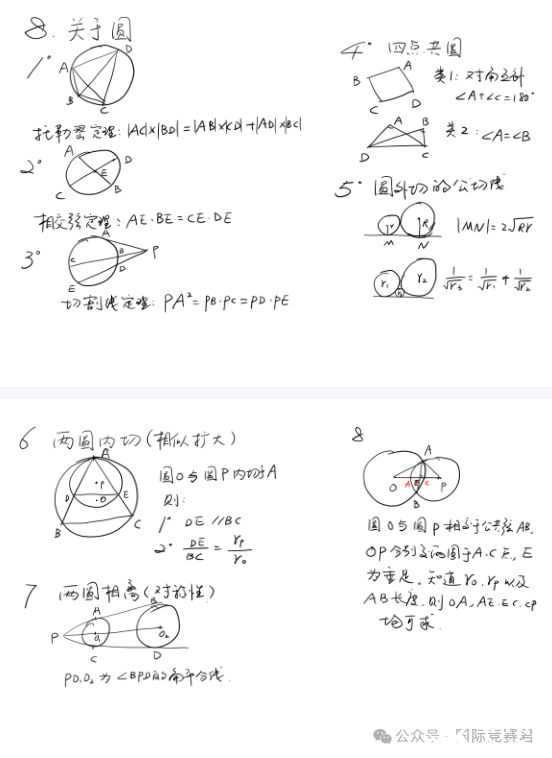 8. 关于圆
1°
A
D
B
C
托勒密定理: |AC|×|BD| = |AB|×|CD| + |AD|×|BC|
2°
A
D
E
C
B
相交弦定理: AE·BE = CE·DE
3°
A
B
P
C
D
E
切割线定理: PA² = PB·PC = PD·PE
4° 四点共圆
A
B
C
D
类1: 对角互补
∠A+∠C=180°
A
B
D
C
类2: ∠A=∠B
5° 圆外切的公切线
r
R
M
N
|MN| = 2√Rr
r₁
r₂
1/√r₃ = 1/√r₁ + 1/√r₂
6 两圆内切(相似扩大)
A
P
D
O
E
B
C
圆O与圆P内切于A
则:
1° DE // BC
2° DE/BC = rₚ/r₀
7 两圆相离(对称性)
A
B
P
O₁
O₂
C
D
PO₁O₂ 为∠BPD的角平分线.
8
A
O
A
E
C
P
B
圆O与圆P相交于公共弦AB,
OP分别交两圆于A.C点, E
为垂足. 知道r₀. rₚ 以及
AB长度, 则OA, AE. EC. CP
均可求.
公众号·国际竞赛君